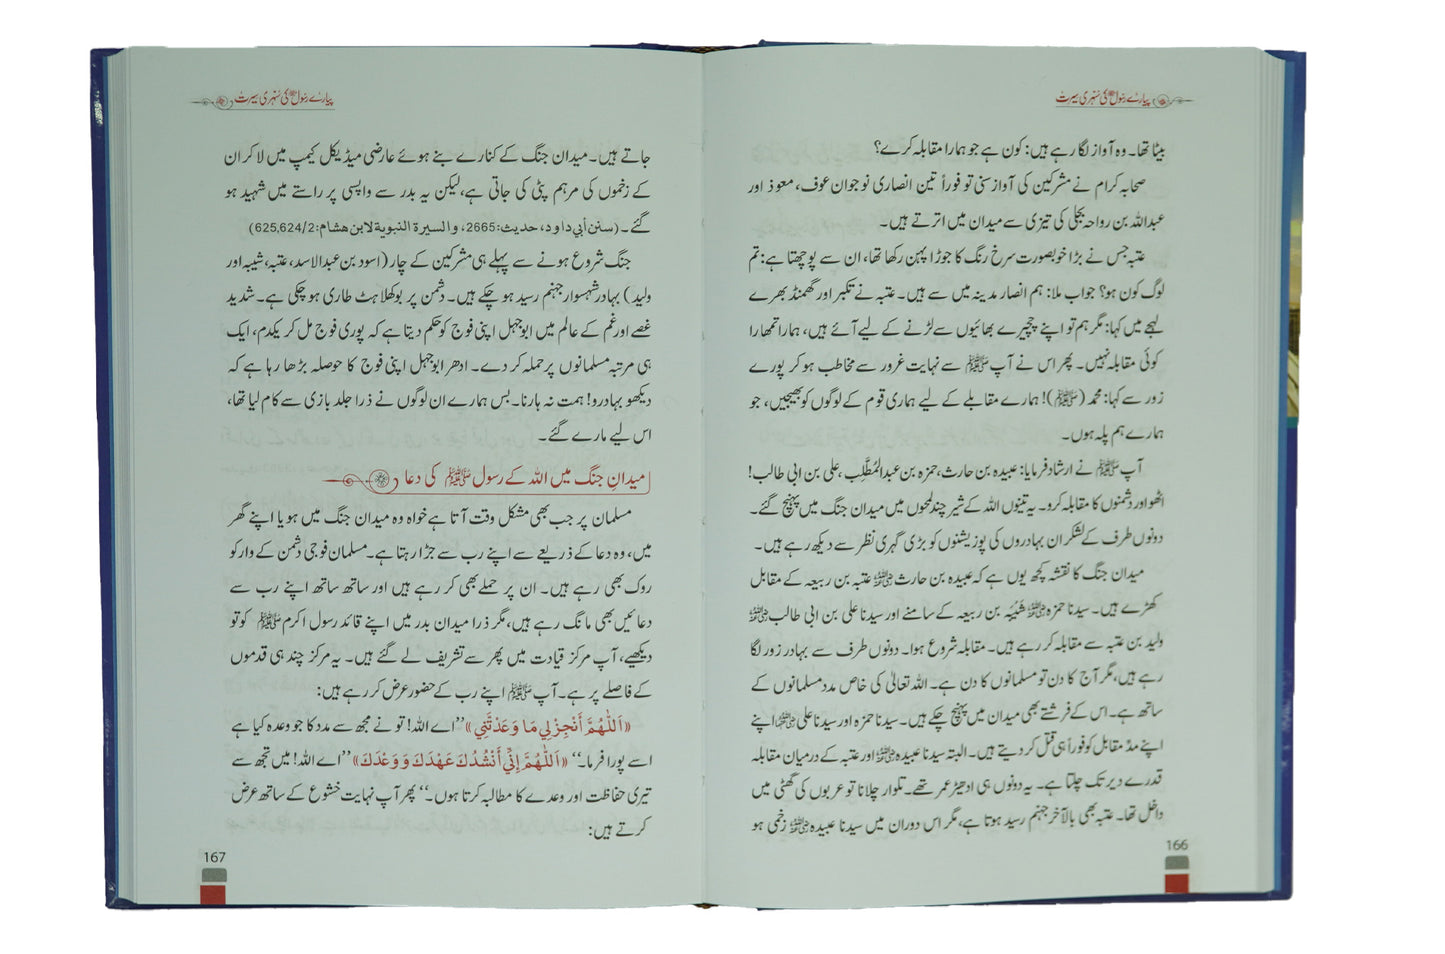 پیارے رسول ﷺ کی سنہری سیرت
بیٹا تھا۔ وہ آواز لگا رہے ہیں: کون ہے جو ہمارا مقابلہ کرے؟
صحابہ کرام نے مشرکین کی آواز سنی تو فوراً تین انصاری نوجوان عوف، معوذ اور
عبداللہ بن رواحہ بجلی کی تیزی سے میدان میں اترتے ہیں۔
عتبہ جس نے بڑا خوبصورت سرخ رنگ کا جوڑا پہن رکھا تھا، ان سے پوچھتا ہے: تم
لوگ کون ہو؟ جواب ملا: ہم انصار مدینہ میں سے ہیں۔ عتبہ نے تکبر اور گھمنڈ بھرے
لہجے میں کہا: مگر ہم تو اپنے چچیرے بھائیوں سے لڑنے کے لیے آئے ہیں، ہمارا تمھارا
کوئی مقابلہ نہیں۔ پھر اس نے آپ ﷺ سے نہایت غرور سے مخاطب ہو کر پورے
زور سے کہا: محمد (ﷺ)! ہمارے مقابلے کے لیے ہماری قوم کے لوگوں کو بھیجیں، جو
ہمارے ہم پلہ ہوں۔
آپ ﷺ نے ارشاد فرمایا: عبیدہ بن حارث، حمزہ بن عبدالمُطَّلِب، علی بن ابی طالب!
اٹھو اور دشمنوں کا مقابلہ کرو۔ یہ تینوں اللہ کے شیر چند لمحوں میں میدان جنگ میں پہنچ گئے۔
دونوں طرف کے لشکر ان بہادروں کی پوزیشنوں کو بڑی گہری نظر سے دیکھ رہے ہیں۔
میدان جنگ کا نقشہ کچھ یوں ہے کہ عبیدہ بن حارث رضی اللہ عنہ عتبہ بن ربیعہ کے مقابل
کھڑے ہیں۔ سیدنا حمزہ رضی اللہ عنہ شَیبَہ بن ربیعہ کے سامنے اور سیدنا علی بن ابی طالب رضی اللہ عنہ
ولید بن عتبہ سے مقابلہ کر رہے ہیں۔ مقابلہ شروع ہوا۔ دونوں طرف سے بہادر زور لگا
رہے ہیں، مگر آج کا دن تو مسلمانوں کا دن ہے۔ اللہ تعالیٰ کی خاص مدد مسلمانوں کے
ساتھ ہے۔ اس کے فرشتے بھی میدان میں پہنچ چکے ہیں۔ سیدنا حمزہ اور سیدنا علی رضی اللہ عنہما اپنے
اپنے مدِّ مقابل کو فوراً ہی قتل کر دیتے ہیں۔ البتہ سیدنا عبیدہ رضی اللہ عنہ اور عتبہ کے درمیان مقابلہ
قدرے دیر تک چلتا ہے۔ یہ دونوں ہی ادھیڑ عمر تھے۔ تلوار چلانا تو عربوں کی گھٹی میں
داخل تھا۔ عتبہ بھی بالآخر جہنم رسید ہوتا ہے، مگر اس دوران میں سیدنا عبیدہ رضی اللہ عنہ زخمی ہو
166
پیارے رسول ﷺ کی سنہری سیرت
جاتے ہیں۔ میدان جنگ کے کنارے بنے ہوئے عارضی میڈیکل کیمپ میں لا کر ان
کے زخموں کی مرہم پٹی کی جاتی ہے، لیکن یہ بدر سے واپسی پر راستے میں شہید ہو
گئے۔ (سنن أبي داود، حديث:2665، والسيرة النبوية لابن هشام:625,624/2)
جنگ شروع ہونے سے پہلے ہی مشرکین کے چار (اسود بن عبدالاسد، عتبہ، شیبہ اور
ولید) بہادر شہسوار جہنم رسید ہو چکے ہیں۔ دشمن پر بوکھلاہٹ طاری ہو چکی ہے۔ شدید
غصے اور غم کے عالم میں ابوجہل اپنی فوج کو حکم دیتا ہے کہ پوری فوج مل کر یکدم، ایک
ہی مرتبہ مسلمانوں پر حملہ کر دے۔ ادھر ابوجہل اپنی فوج کا حوصلہ بڑھا رہا ہے کہ
دیکھو بہادرو! ہمت نہ ہارنا۔ بس ہمارے ان لوگوں نے ذرا جلد بازی سے کام لیا تھا،
اس لیے مارے گئے۔
میدانِ جنگ میں اللہ کے رسول ﷺ کی دعا
مسلمان پر جب بھی مشکل وقت آتا ہے خواہ وہ میدان جنگ میں ہو یا اپنے گھر
میں، وہ دعا کے ذریعے سے اپنے رب سے جڑا رہتا ہے۔ مسلمان فوجی دشمن کے وار کو
روک بھی رہے ہیں۔ ان پر حملے بھی کر رہے ہیں اور ساتھ ساتھ اپنے رب سے
دعائیں بھی مانگ رہے ہیں، مگر ذرا میدان بدر میں اپنے قائد رسول اکرم ﷺ کو تو
دیکھیے، آپ مرکز قیادت میں پھر سے تشریف لے گئے ہیں۔ یہ مرکز چند ہی قدموں
کے فاصلے پر ہے۔ آپ ﷺ اپنے رب کے حضور عرض کر رہے ہیں:
«اَللّٰهُمَّ أَنْجِزْ لِي مَا وَعَدْتَّنِي» ’’اے اللہ! تو نے مجھ سے مدد کا جو وعدہ کیا ہے
اسے پورا فرما۔‘‘ «اَللّٰهُمَّ إِنِّي أَنْشُدُكَ عَهْدَكَ وَوَعْدَكَ» ’’اے اللہ! میں تجھ سے
تیری حفاظت اور وعدے کا مطالبہ کرتا ہوں۔‘‘ پھر آپ نہایت خشوع کے ساتھ عرض
کرتے ہیں:
167